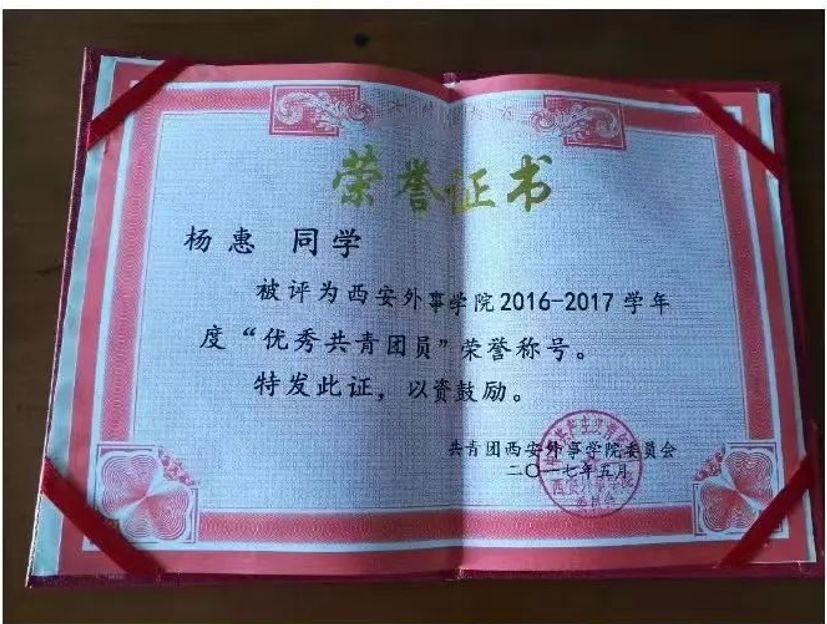 荣誉证书
杨惠 同学
被评为西安外事学院2016-2017学年
度“优秀共青团员”荣誉称号。
特发此证，以资鼓励。
共青团西安外事学院委员会
二〇一七年五月
西安外事学院
委员会